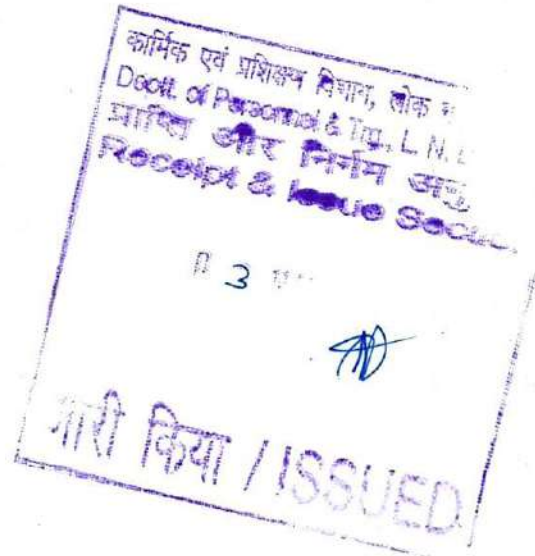 कार्मिक एवं प्रशिक्षण विभाग, लोक
Deptt. of Personnel & Trg., L. N.
प्राप्ति और निर्गम अनु
Receipt & Issue Section
3
जारी किया / ISSUED